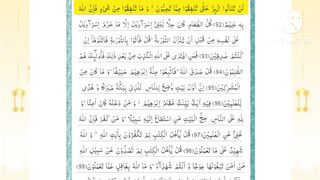 لَنْ تَنَالُوا الْبِرَّ حَتّٰى تُنْفِقُوا مِمَّا تُحِبُّوْنَ ۚ وَ مَا تُنْفِقُوْا مِنْ شَىْءٍ فَاِنَّ اللّٰهَ
بِهٖ عَلِيْمٌ(92) كُلُّ الطَّعَامِ كَانَ حِلًّا لِّبَنِىْ اِسْرَآءِيْلَ اِلَّا مَا حَرَّمَ اِسْرَآءِيْلُ
عَلٰى نَفْسِهٖ مِنْ قَبْلِ اَنْ تُنَزَّلَ التَّوْرٰىةُ ؕ قُلْ فَاْتُوْا بِالتَّوْرٰىةِ فَاتْلُوْهَاۤ اِنْ
كُنْتُمْ صٰدِقِيْنَ(93) فَمَنِ افْتَرٰى عَلَى اللّٰهِ الْكَذِبَ مِنْۢ بَعْدِ ذٰلِكَ فَاُولٰٓئِكَ هُمُ
الظّٰلِمُوْنَ(94) قُلْ صَدَقَ اللّٰهُ فَاتَّبِعُوْا مِلَّةَ اِبْرٰهِيْمَ حَنِيْفًا ؕ وَ مَا كَانَ مِنَ
الْمُشْرِكِيْنَ(95) اِنَّ اَوَّلَ بَيْتٍ وُّضِعَ لِلنَّاسِ لَلَّذِىْ بِبَكَّةَ مُبٰرَكًا وَّ هُدًى
لِّلْعٰلَمِيْنَ(96) فِيْهِ اٰيٰتٌۢ بَيِّنٰتٌ مَّقَامُ اِبْرٰهِيْمَ وَ مَنْ دَخَلَهٗ كَانَ اٰمِنًا ؕ وَ
لِلّٰهِ عَلَى النَّاسِ حِجُّ الْبَيْتِ مَنِ اسْتَطَاعَ اِلَيْهِ سَبِيْلًا ؕ وَ مَنْ كَفَرَ فَاِنَّ اللّٰهَ
غَنِىٌّ عَنِ الْعٰلَمِيْنَ(97) قُلْ يٰۤاَهْلَ الْكِتٰبِ لِمَ تَكْفُرُوْنَ بِاٰيٰتِ اللّٰهِ وَ اللّٰهُ
شَهِيْدٌ عَلٰى مَا تَعْمَلُوْنَ(98) قُلْ يٰۤاَهْلَ الْكِتٰبِ لِمَ تَصُدُّوْنَ عَنْ سَبِيْلِ اللّٰهِ
مَنْ اٰمَنَ تَبْغُوْنَهَا عِوَجًا وَّ اَنْتُمْ شُهَدَآءُ ؕ وَ مَا اللّٰهُ بِغَافِلٍ عَمَّا تَعْمَلُوْنَ(99)